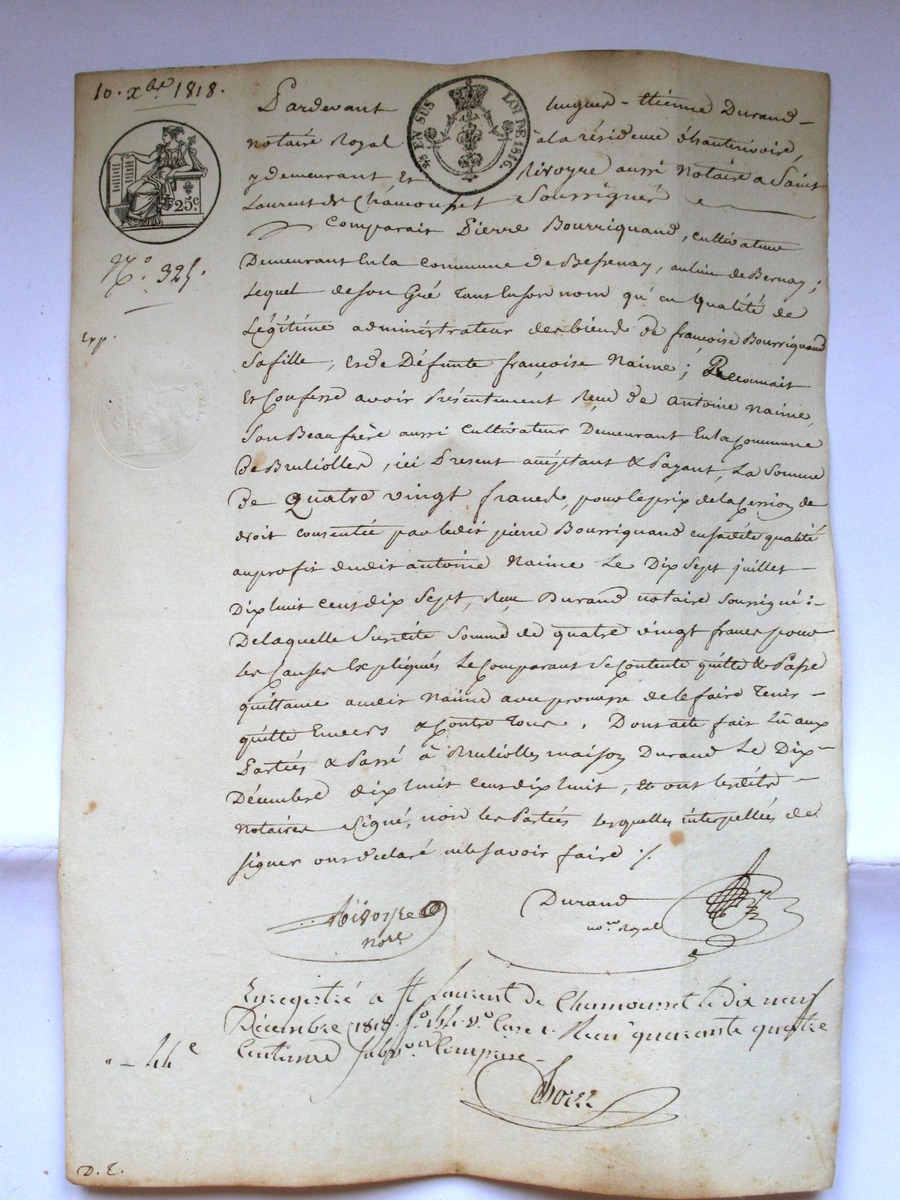 10. Xbre 1818.
Pardevant hugues-étienne Durand
notaire Royal à la résidence d'hauterivoire,
y demeurant Et Rivoyre aussi Notaire a Saint
Laurent de Chamousset Soussignés
4s EN SUS LOI DE 1816.
25c
N.o 325.
Exp.
Comparait Pierre Bourriquand, cultivateur
Demeurant En la commune de Bessenay, au lieu de Bernay;
Lequel de son Gré Tant En son nom qu'en Qualité de
Légitime administrateur des biens de françoise Bourriquand
Sa fille, Et de Défunte françoise Naime; Reconnait
Et Confesse avoir Présentement Reçu de antoine naime,
Son Beaufrère aussi Cultivateur Demeurant En la Commune
de Bruliolles, ici Présent acceptant & Payant, La Somme
De Quatre vingt francs, pour le prix de la Cession de
droit consentie par ledit pierre Bourriquand en sadite qualité
au profit dudit antoine Naime Le Dix Sept juillet
Dix huit cent dix Sept, Reçu Durand notaire soussigné:
De laquelle Susdite Somme de quatre vingt francs pour
Les Causes Expliqués Le Comparant Se Contente quitte & Passe
quittance audit Naime avec promesse de le faire Tenir
quitte Envers & Contre Tous. Dont acte fait Lu aux
Parties & Passé à Bruliolles maison Durand Le Dix
Décembre dix huit cent dix huit, Et ont lesdits
notaires Signé, non les Parties lesquelles interpellées de
signer ont déclaré ne le savoir faire ./.
Rivoyre
nore
Durand
nore Royal
Enregistré a St Laurent de Chamousset le dix neuf
Décembre 1818. fo 144 vo Case 1. Reçu quarante quatre
Centimes subvon Comprise
" - 44c
D. E.